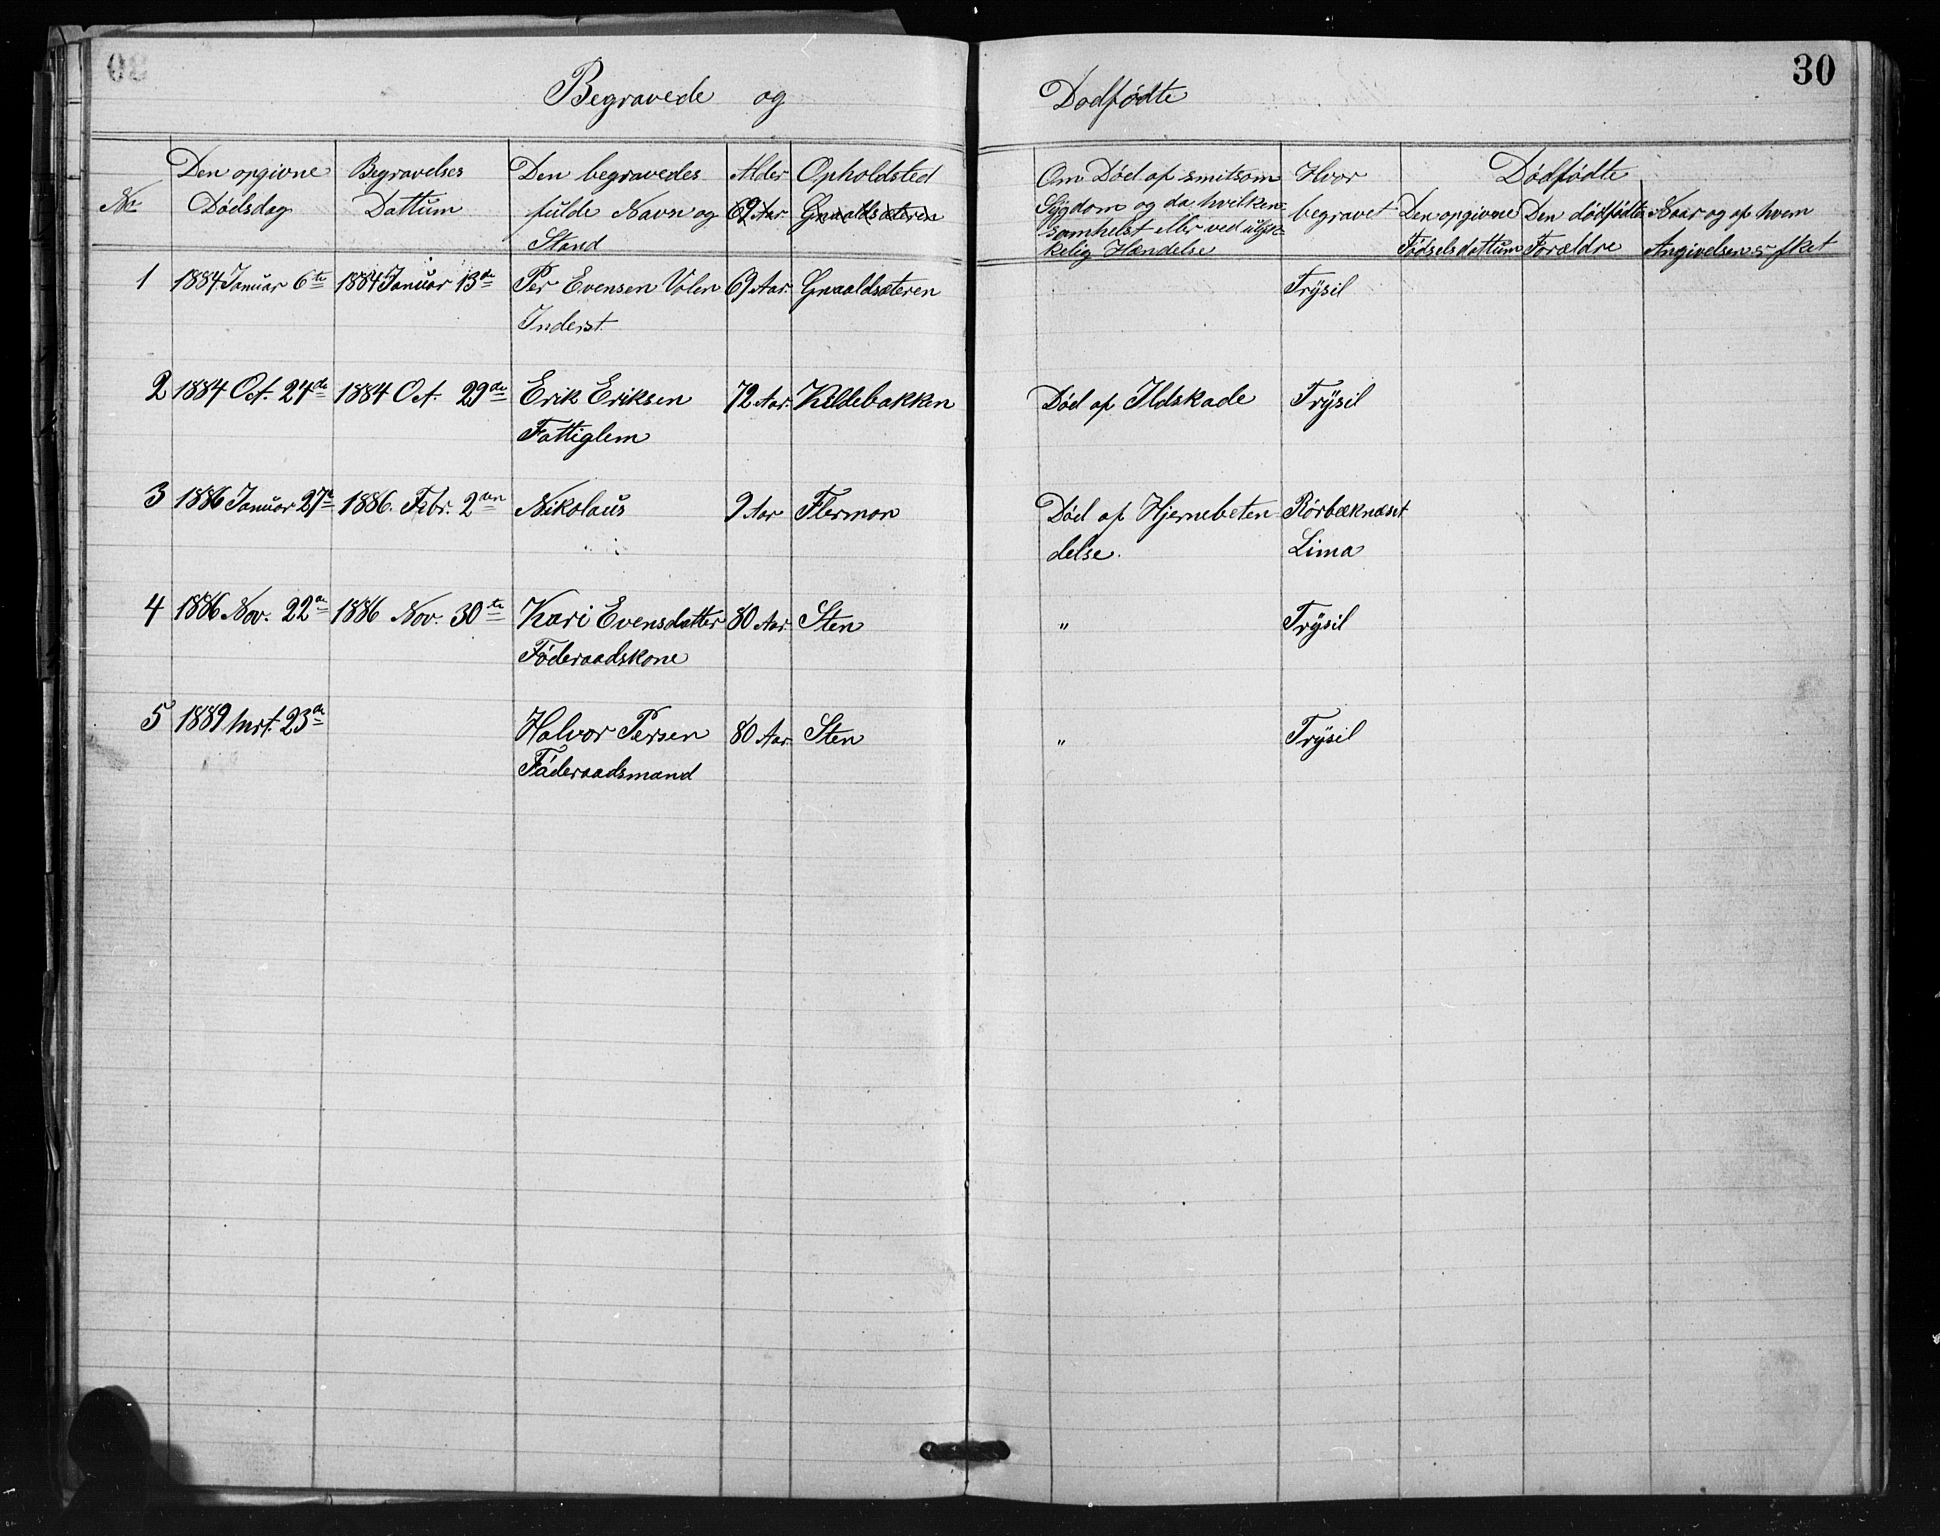 30
Begravede og Dødfødte
No
Den opgivne Dødsdag
Begravelses Dattum
Den begravedes fulde Navn og Stand
Alder
69 Aar
Opholdsted
Gnaaldsæteren
Om Død af smitsom
Sÿgdom og da hvilken-
somhelst eller ved ulÿk-
kelig Hændelse
Hvor begravet
Dødfødte
Den opgivne Fødselsdattum
Den dødfødtes Forældre
Naar og af hvem Angivelsen er sket
1 1884 Januar 6te 1884 Januar 13de Per Evensen Volen 69 Aar. Gnaaldsæteren Trÿsil
Inderst.
2 1884 Oct. 24de 1884 Oct. 29de Erik Eriksen 72 Aar. Kildebakken Død af Ildskade Trÿsil
Fattiglem
3 1886 Januar 27de 1886. Febr. 2den Nikolaus 9 Aar Flermon Død af Hjernebeten- Rörbæknæset
delse. Lima
4 1886 Nov. 22de 1886 Nov. 30te Kari Evensdatter 80 Aar. Sten " Trÿsil
Föderaadskone
5 1889 23de Halvor Persen 80 Aar. Sten " Trÿsil
Föderaadsmand